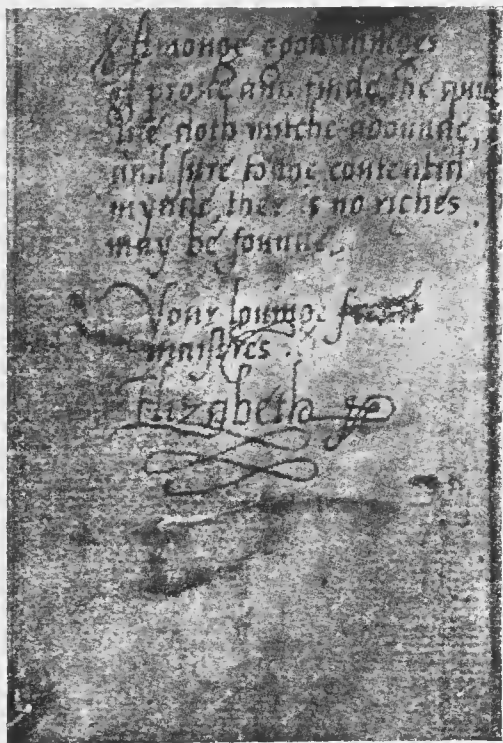 Amonge good thinges
I proue and finde, the quiet
life doth muche abounde,
and sure to the contentid
mynde, ther is no riches
may be founde.
Your louinge
maistres.
Elizabeth